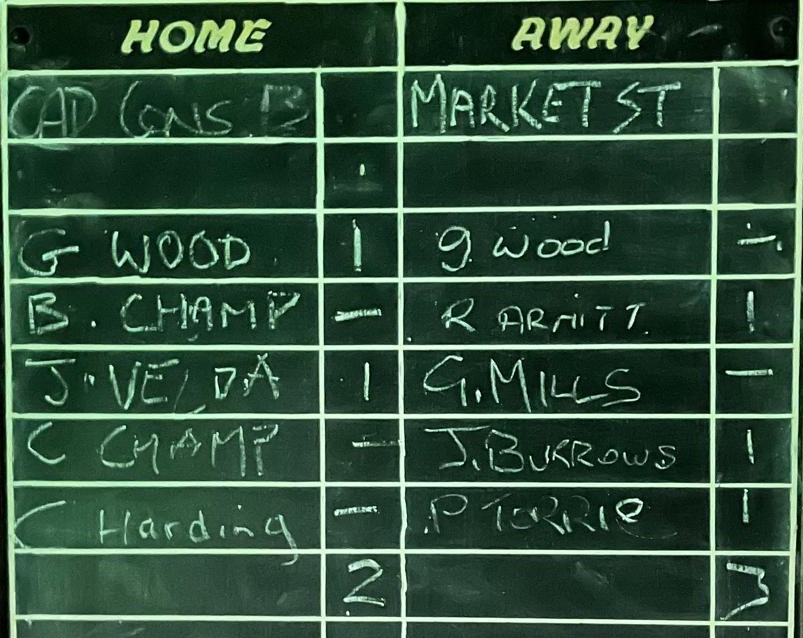 HOME AWAY
CAD CONS B MARKET ST
G WOOD 1 g wood -
B. CHAMP - R ARMITT 1
J. VELDA 1 G. MILLS -
C CHAMP - J. BURROWS 1
C Harding - P TORRIE 1
2 3